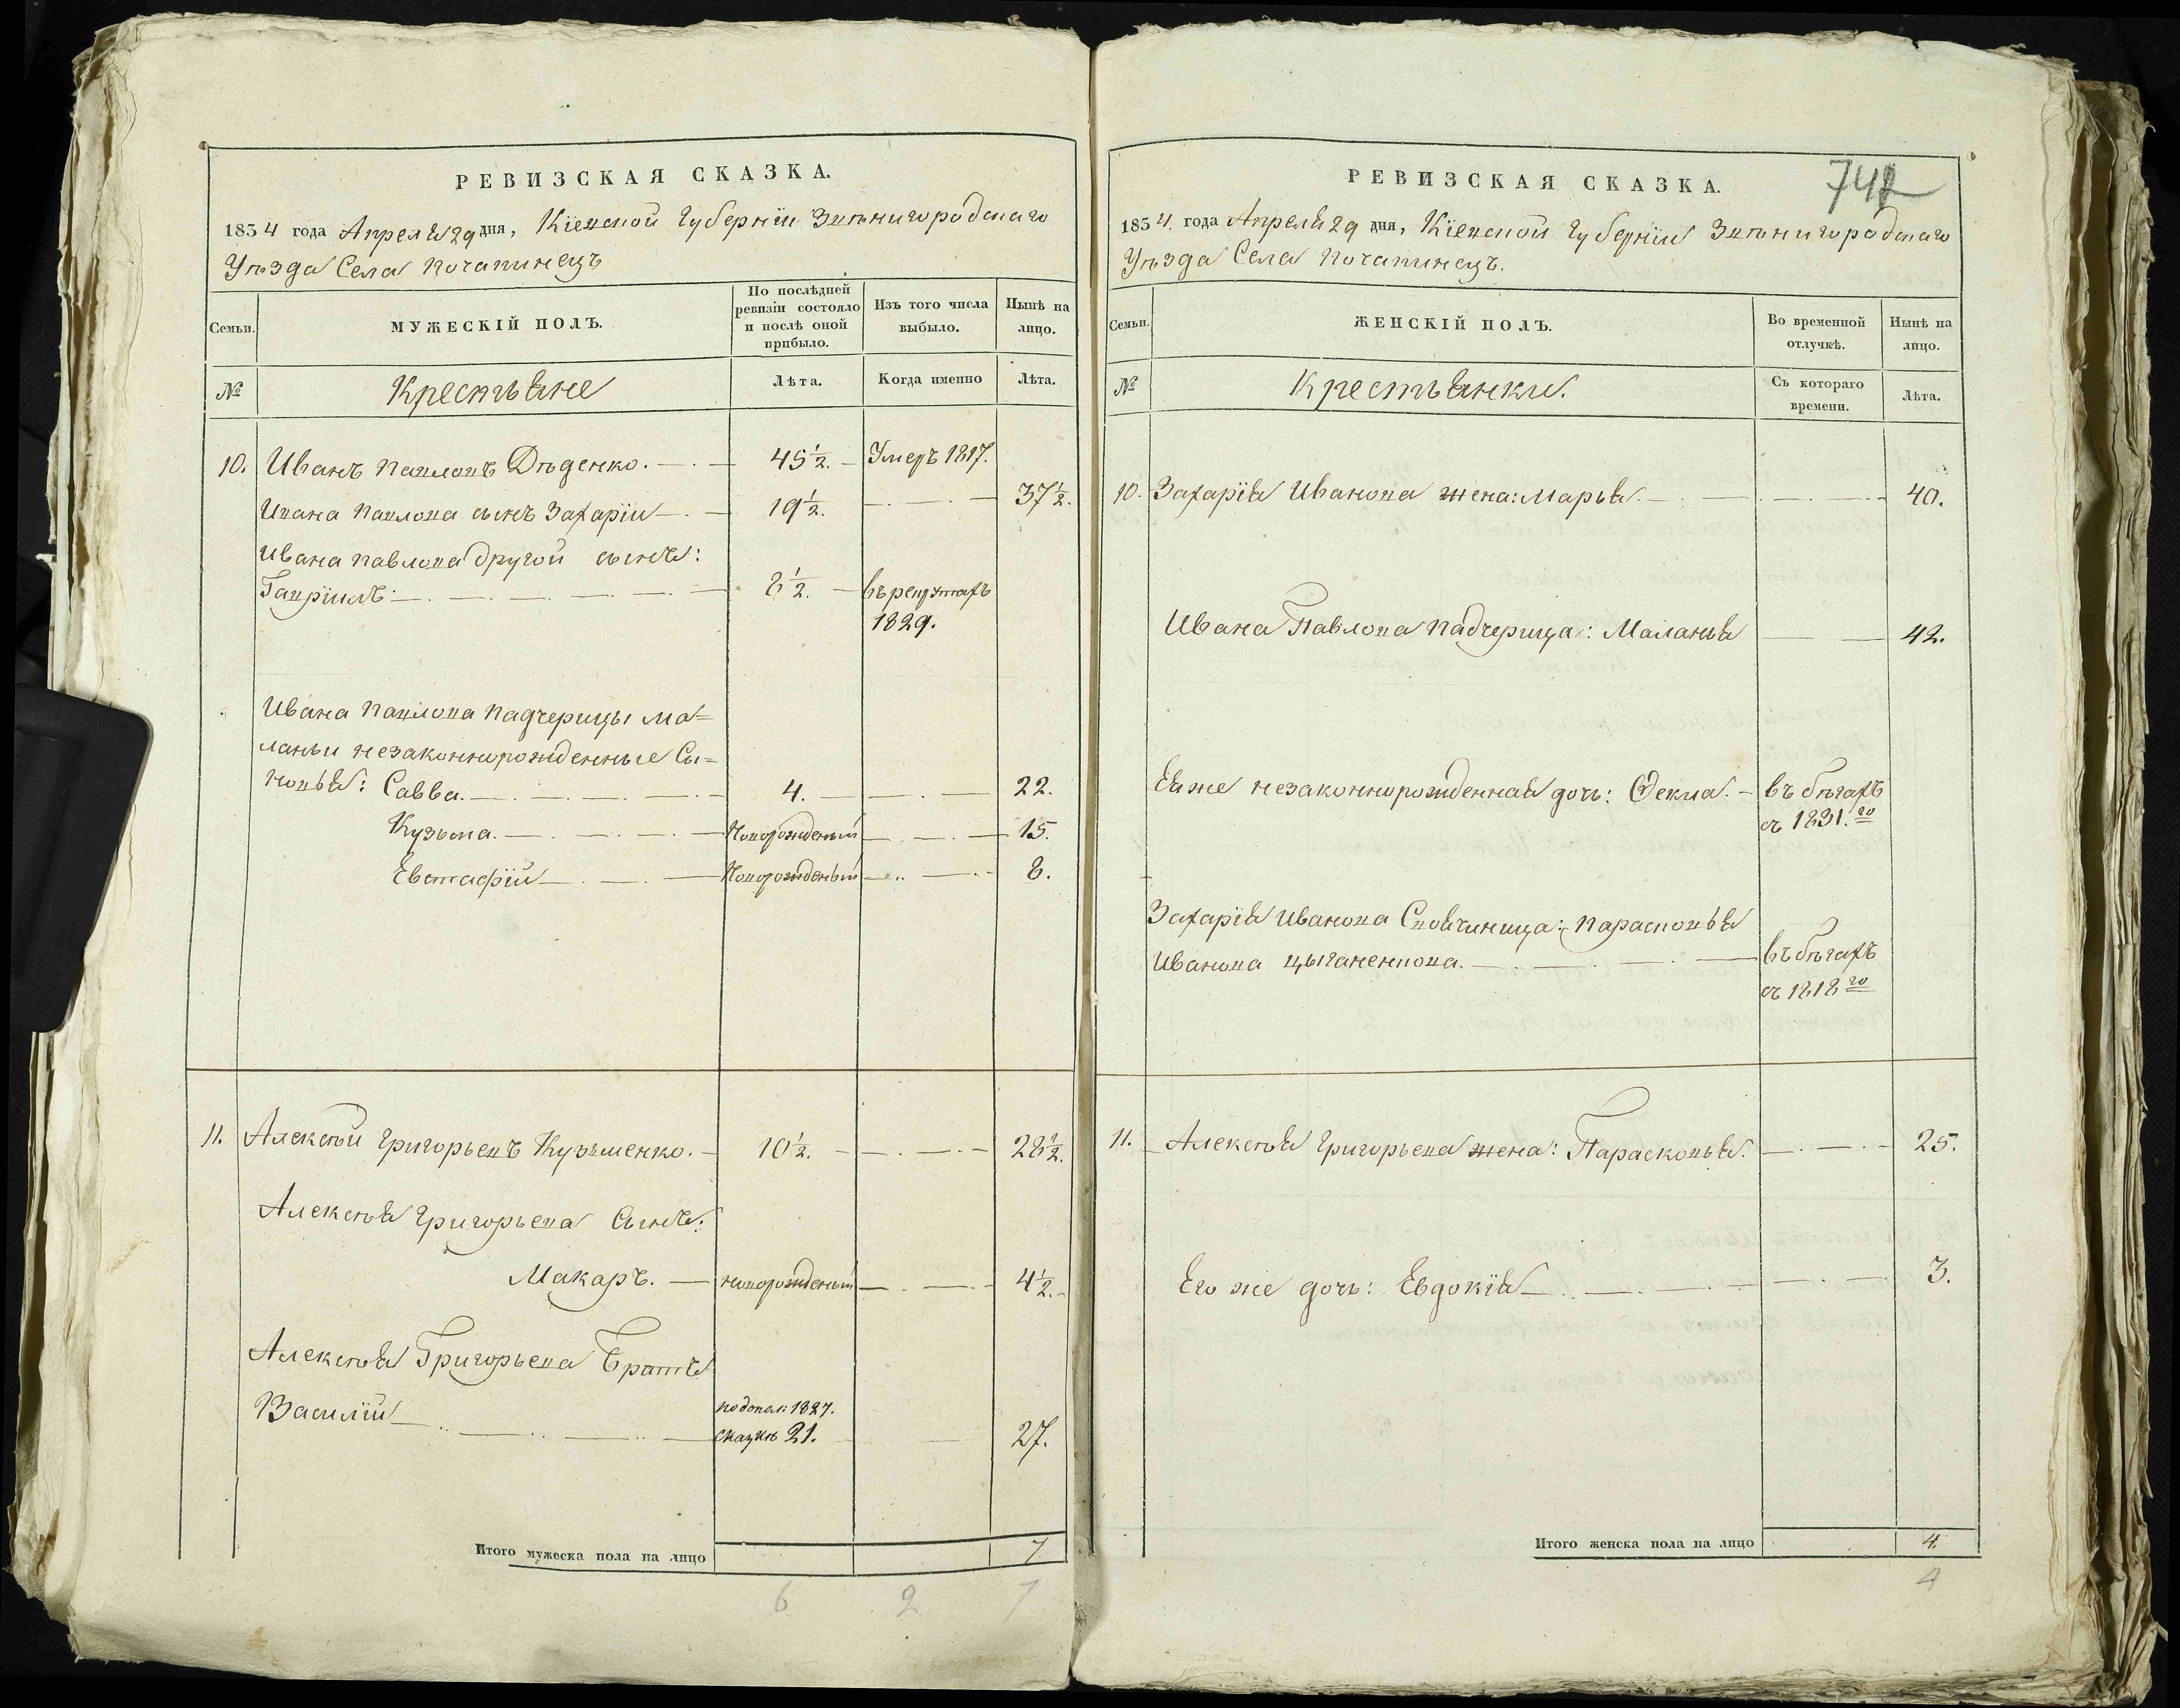 РЕВИЗСКАЯ СКАЗКА.
1834 года Апреля 29 дня, Кіевской Губерніи Звѣнигородскаго
Уѣзда Села Почапинецъ
Семьи.
МУЖЕСКІЙ ПОЛЪ.
По послѣдней ревизіи состояло и послѣ оной прибыло.
Изъ того числа выбыло.
Нынѣ на лицо.
№
Крестьяне
Лѣта.
Когда именно
Лѣта.
10. Иванъ Павловъ Дѣденко. 45 1/2. Умеръ 1817.
Ивана Павлова сынъ Захарій 19 1/2. 37 1/2.
Ивана Павлова другой сынъ:
Гавріилъ: 8 1/2. въ рекрутахъ
1829.
Ивана Павлова падчерицы Ма=
ланьи незаконнорожденные Сы=
новья: Савва. 4. 22.
Кузьма. Новорожденый 15.
Евстафій Новорожденый 8.
11. Алексѣй Григорьевъ Кузьменко. 10 1/2. 28 1/2.
Алексѣя Григорьева Сынъ:
Макаръ. новорожденый 4 1/2.
Алексѣя Григорьева Братъ
Василій подопол: 1827.
сказкѣ 21. 27.
Итого мужеска пола на лицо 7
6 2 7
РЕВИЗСКАЯ СКАЗКА.
742
1834. года Апреля 29 дня, Кіевской Губерніи Звѣнигородскаго
Уѣзда Села Почапинецъ.
Семьи.
ЖЕНСКІЙ ПОЛЪ.
Во временной отлучкѣ.
Нынѣ на лицо.
№
Крестьянки.
Съ котораго времени.
Лѣта.
10. Захарія Иванова жена: Марья. 40.
Ивана Павлова падчерица: Маланья 42.
Ея же незаконнорожденная дочь: Ѳекла. въ бѣгахъ
съ 1831.го
Захарія Иванова Своячиница: Парасковья
Иванова Цыганенкова. въ бѣгахъ
съ 1818го
11. Алексѣя Григорьева жена: Парасковья. 25.
Его же дочь: Евдокія 3.
Итого женска пола на лицо 4.
4